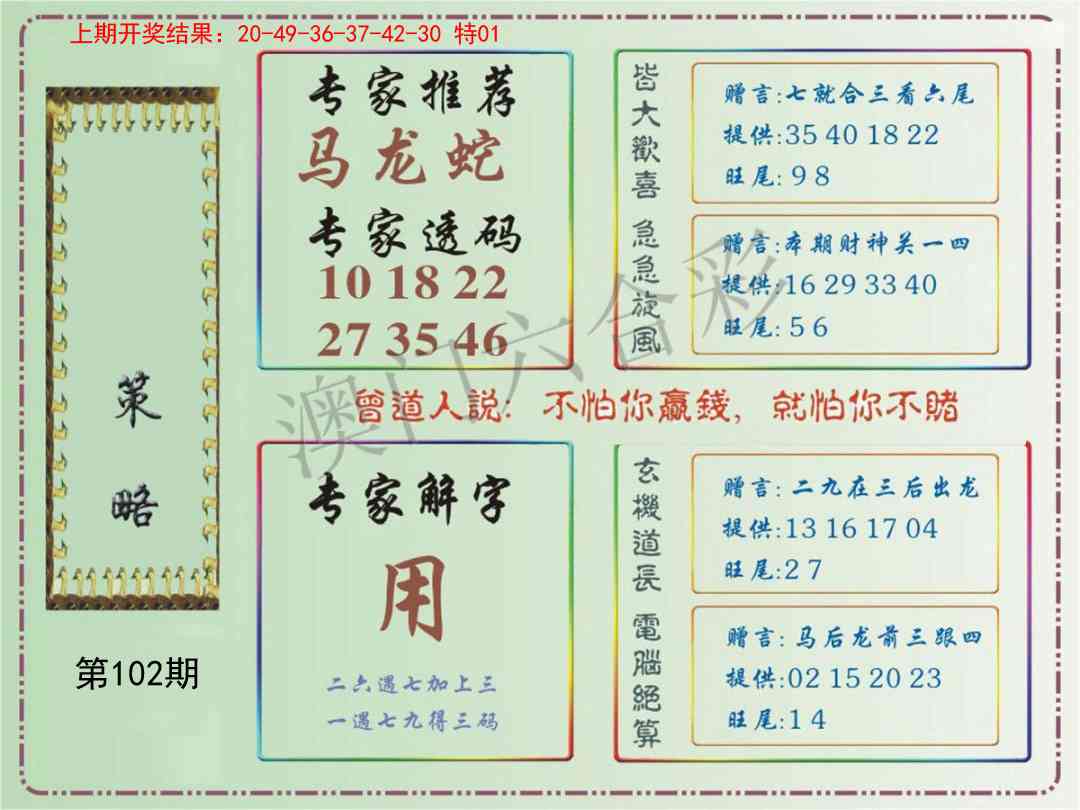 上期开奖结果：20-49-36-37-42-30 特01
策略
第102期
专家推荐
马龙蛇
专家透码
10 18 22
27 35 46
皆大歡喜
赠言:七就合三看六尾
提供:35 40 18 22
旺尾:9 8
急急旋風
赠言:本期财神关一四
提供:16 29 33 40
旺尾:5 6
澳门六合彩
曾道人説：不怕你贏錢，就怕你不賭
专家解字
用
二六遇七加上三
一遇七九得三码
玄機道長
赠言:二九在三后出龙
提供:13 16 17 04
旺尾:2 7
電腦絕算
赠言:马后龙前三跟四
提供:02 15 20 23
旺尾:1 4